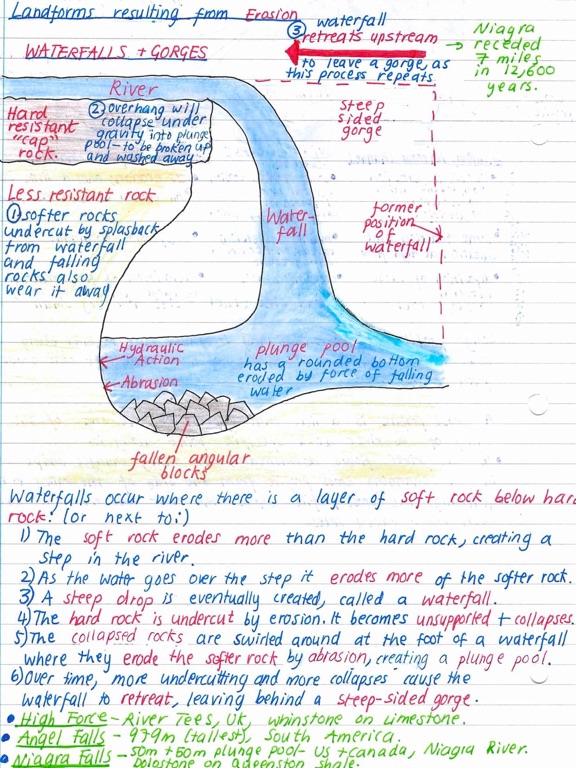 Landforms resulting from Erosion
WATERFALLS + GORGES
③ waterfall
retreats upstream
to leave a gorge, as
this process repeats.
→ Niagra
receded
7 miles
in 12,600
years.
River
Hard
resistant
"cap"
rock.
② Overhang will
collapse under
gravity into plunge
pool - to be broken up
and washed away
steep
sided
gorge
Less resistant rock
① softer rocks
undercut by splasback
from waterfall
and falling
rocks also
wear it away
Water-
fall
former
position
of
waterfall
Hydraulic
Action
Abrasion
plunge pool
has a rounded bottom
eroded by force of falling
water
fallen angular
blocks
Waterfalls occur where there is a layer of soft rock below hard
rock! (or next to!)
1) The soft rock erodes more than the hard rock, creating a
step in the river.
2) As the water goes over the step it erodes more of the softer rock.
3) A steep drop is eventually created, called a waterfall.
4) The hard rock is undercut by erosion. It becomes unsupported + collapses.
5) The collapsed rocks are swirled around at the foot of a waterfall
where they erode the softer rock by abrasion, creating a plunge pool.
6) Over time, more undercutting and more collapses cause the
waterfall to retreat, leaving behind a steep-sided gorge.
• High Force - River Tees, UK, whinstone on Limestone.
• Angel Falls - 979m (tallest), South America.
• Niagra Falls - 50m + 50m plunge pool - US + Canada, Niagra River.
Dolostone on queenston shale.